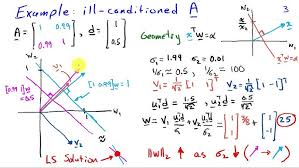 Example: ill-conditioned A
3
A = [1 0.99; 0.99 1], d = [1; 0.5]
Geometry x^T w = α
σ₁ = 1.99 σ₂ = 0.01
1/σ₁ ≈ 0.5 1/σ₂ = 100
V₁ = 1/√2 [1 1]^T
V₂ = 1/√2 [1 -1]^T
u₁^T d = 1.5/√2, u₂^T d = 0.5/√2
w = V₁ u₁^T d/σ₁ + V₂ u₂^T d/σ₂ = [1; 1] 3/8 + [1; -1] 25
w₂
V₁
[1 0.99] w = 1
w₁
V₂
LS Solution
||w||₂ ↑ as σ₂ ↓